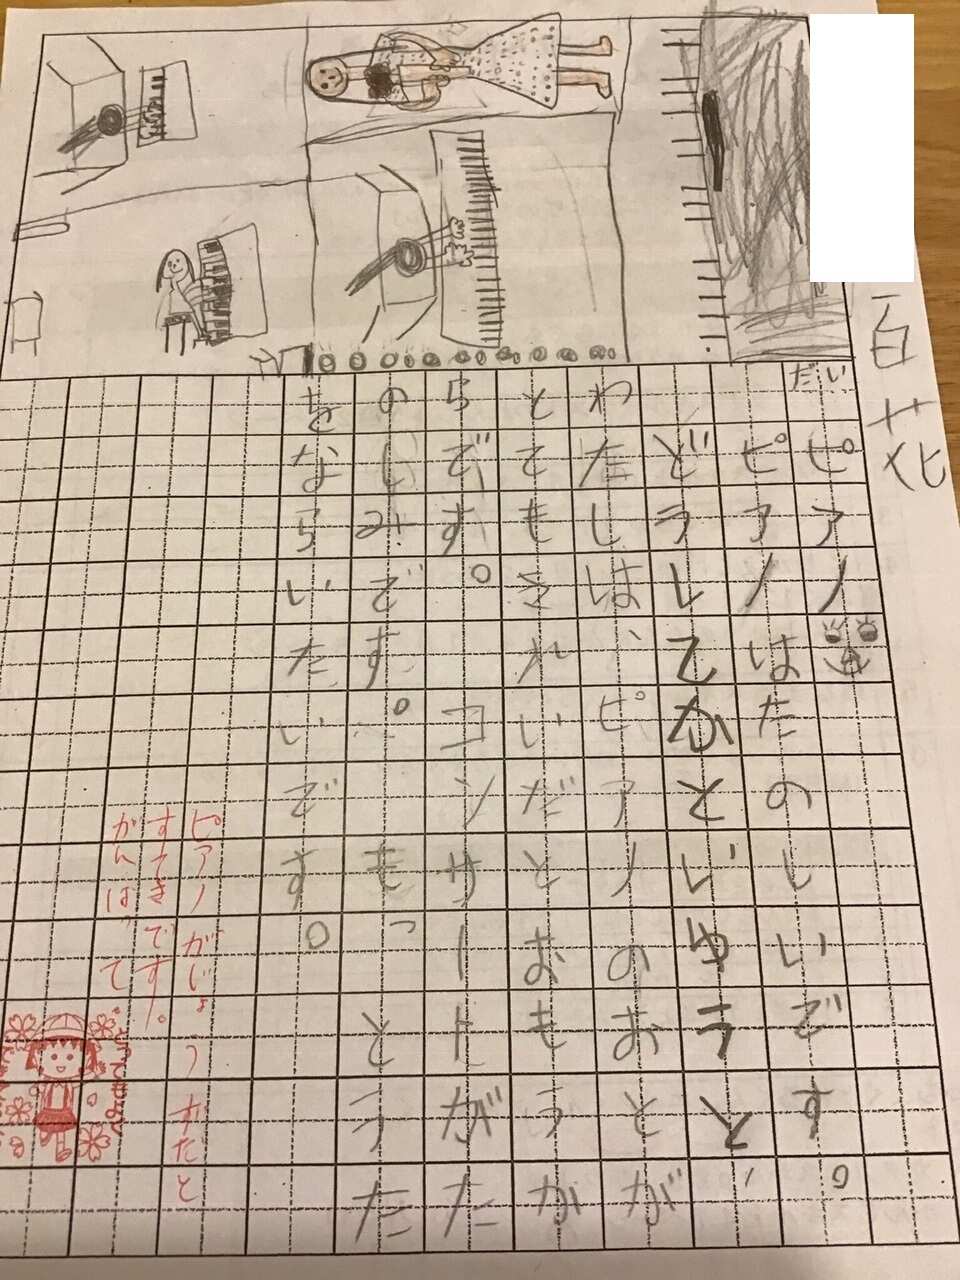 百花
だい
ピアノ
ピアノはたのしいです。
どうしてかといゆうと、
わたしは、ピアノのおとが
とてもきれいだとおもうか
らです。コンサートがた
のしみです。もっとうた
をならいたいです。
ピアノがじょうずだと
すてきです。
がんばって